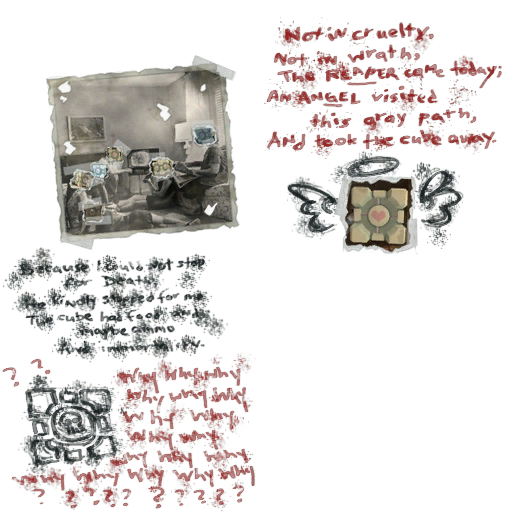 Not in cruelty,
Not in wrath,
The REAPER came today;
An ANGEL visited
this gray path,
And took the cube away.
Because I could not stop
for Death,
He kindly stopped for me
The cube had food and
maybe ammo
And immortality.
? ?
Why Why Why
Why Why Why
Why Why
Why Why
Why Why Why
Why Why Why Why Why
? ? ? ? ? ? ? ? ? ? ?